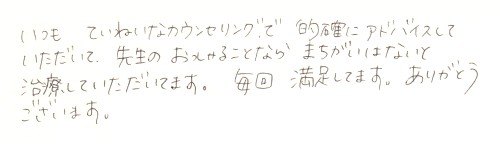 いつも ていねいなカウンセリングで 的確にアドバイスして
いただいて、先生の おっしゃることなら まちがいはないと
治療していただいてます。 毎回 満足してます。ありがとう
ございます。